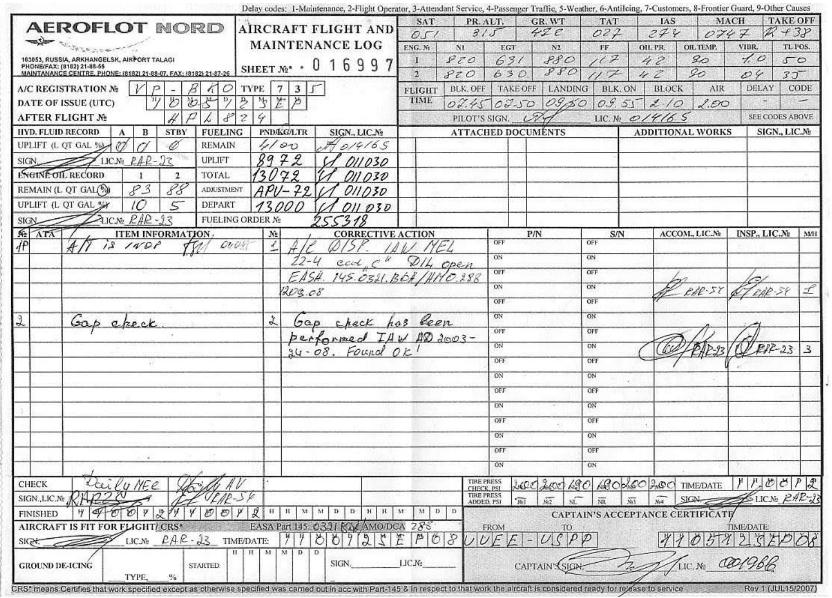 Delay codes: 1-Maintenance, 2-Flight Operator, 3-Attendant Service, 4-Passenger Traffic, 5-Weather, 6-AntiIcing, 7-Customers, 8-Frontier Guard, 9-Other Causes
AEROFLOT NORD
163053, RUSSIA, ARKHANGELSK, AIRPORT TALAGI
PHONE/FAX: (8182) 21-88-55
MAINTANANCE CENTRE, PHONE: (8182) 21-88-07, FAX: (8182) 21-87-26
AIRCRAFT FLIGHT AND
MAINTENANCE LOG
SHEET №* 016997
SAT PR. ALT. GR. WT TAT IAS MACH TAKE OFF
051 815 422 027 274 0747
ENG. № N1 EGT N2 FF OIL PR. OIL TEMP. VIBR. TL POS.
1 820 631 880 117 42 80 1.0 50
2 820 630 880 117 42 80 04 35
FLIGHT TIME BLK. OFF TAKE OFF LANDING BLK. ON BLOCK AIR DELAY CODE
07.45 07.50 09.50 09.55 2.10 2.00
PILOT'S SIGN. LIC. № 014165 SEE CODES ABOVE
A/C REGISTRATION № VP-BKO TYPE 735
DATE OF ISSUE (UTC)
AFTER FLIGHT № 824
HYD. FLUID RECORD A B STBY
UPLIFT (L QT GAL %) 0 0 0
SIGN. LIC.№ RAR-23
ENGINE OIL RECORD 1 2
REMAIN (L QT GAL %) 83 88
UPLIFT (L QT GAL %) 10 5
SIGN. LIC.№ RAR-23
FUELING PND/KG/LTR SIGN., LIC.№
REMAIN 4100 014165
UPLIFT 8972 011030
TOTAL 13072 011030
ADJUSTMENT APU-72 011030
DEPART 13000 011030
FUELING ORDER № 255318
ATTACHED DOCUMENTS ADDITIONAL WORKS SIGN., LIC.№
№ ATA ITEM INFORMATION № CORRECTIVE ACTION P/N S/N ACCOM., LIC.№ INSP., LIC.№ M/H
A/T is INOP 1 A/C DISP. IAW MEL
22-4 "C" DIL open
EASA.145.0321.
RAR-54 RAR-54 1
2 Gap check. 2 Gap check has been
performed IAW AD 2003-
24-08. Found OK! RAR-23 RAR-23 3
OFF
ON
CHECK Daily MEL
SIGN.,LIC.№ RAR-54
FINISHED H H M M M D D
TIRE PRESS CHECK, PSI 200 200 190 190 200 200 TIME/DATE
TIRE PRESS ADDED, PSI №1 №2 NL NR №3 №4 SIGN. LIC.№ RAR-23
AIRCRAFT IS FIT FOR FLIGHT/CRS* EASA Part 145. AMO/DCA 285
SIGN. LIC.№ RAR-23 TIME/DATE: SEP08
CAPTAIN'S ACCEPTANCE CERTIFICATE
FROM TO TIME/DATE:
UUEE-USPP 12SEP08
GROUND DE-ICING STARTED H H M M D D SIGN. LIC.№
TYPE, %
CAPTAIN'S SIGN. LIC. №
CRS* means Certifies that work specified except as otherwise specified was carried out in acc with Part-145 & in respect to that work the aircraft is considered ready for release to service Rev 1 (JUL15/2007)